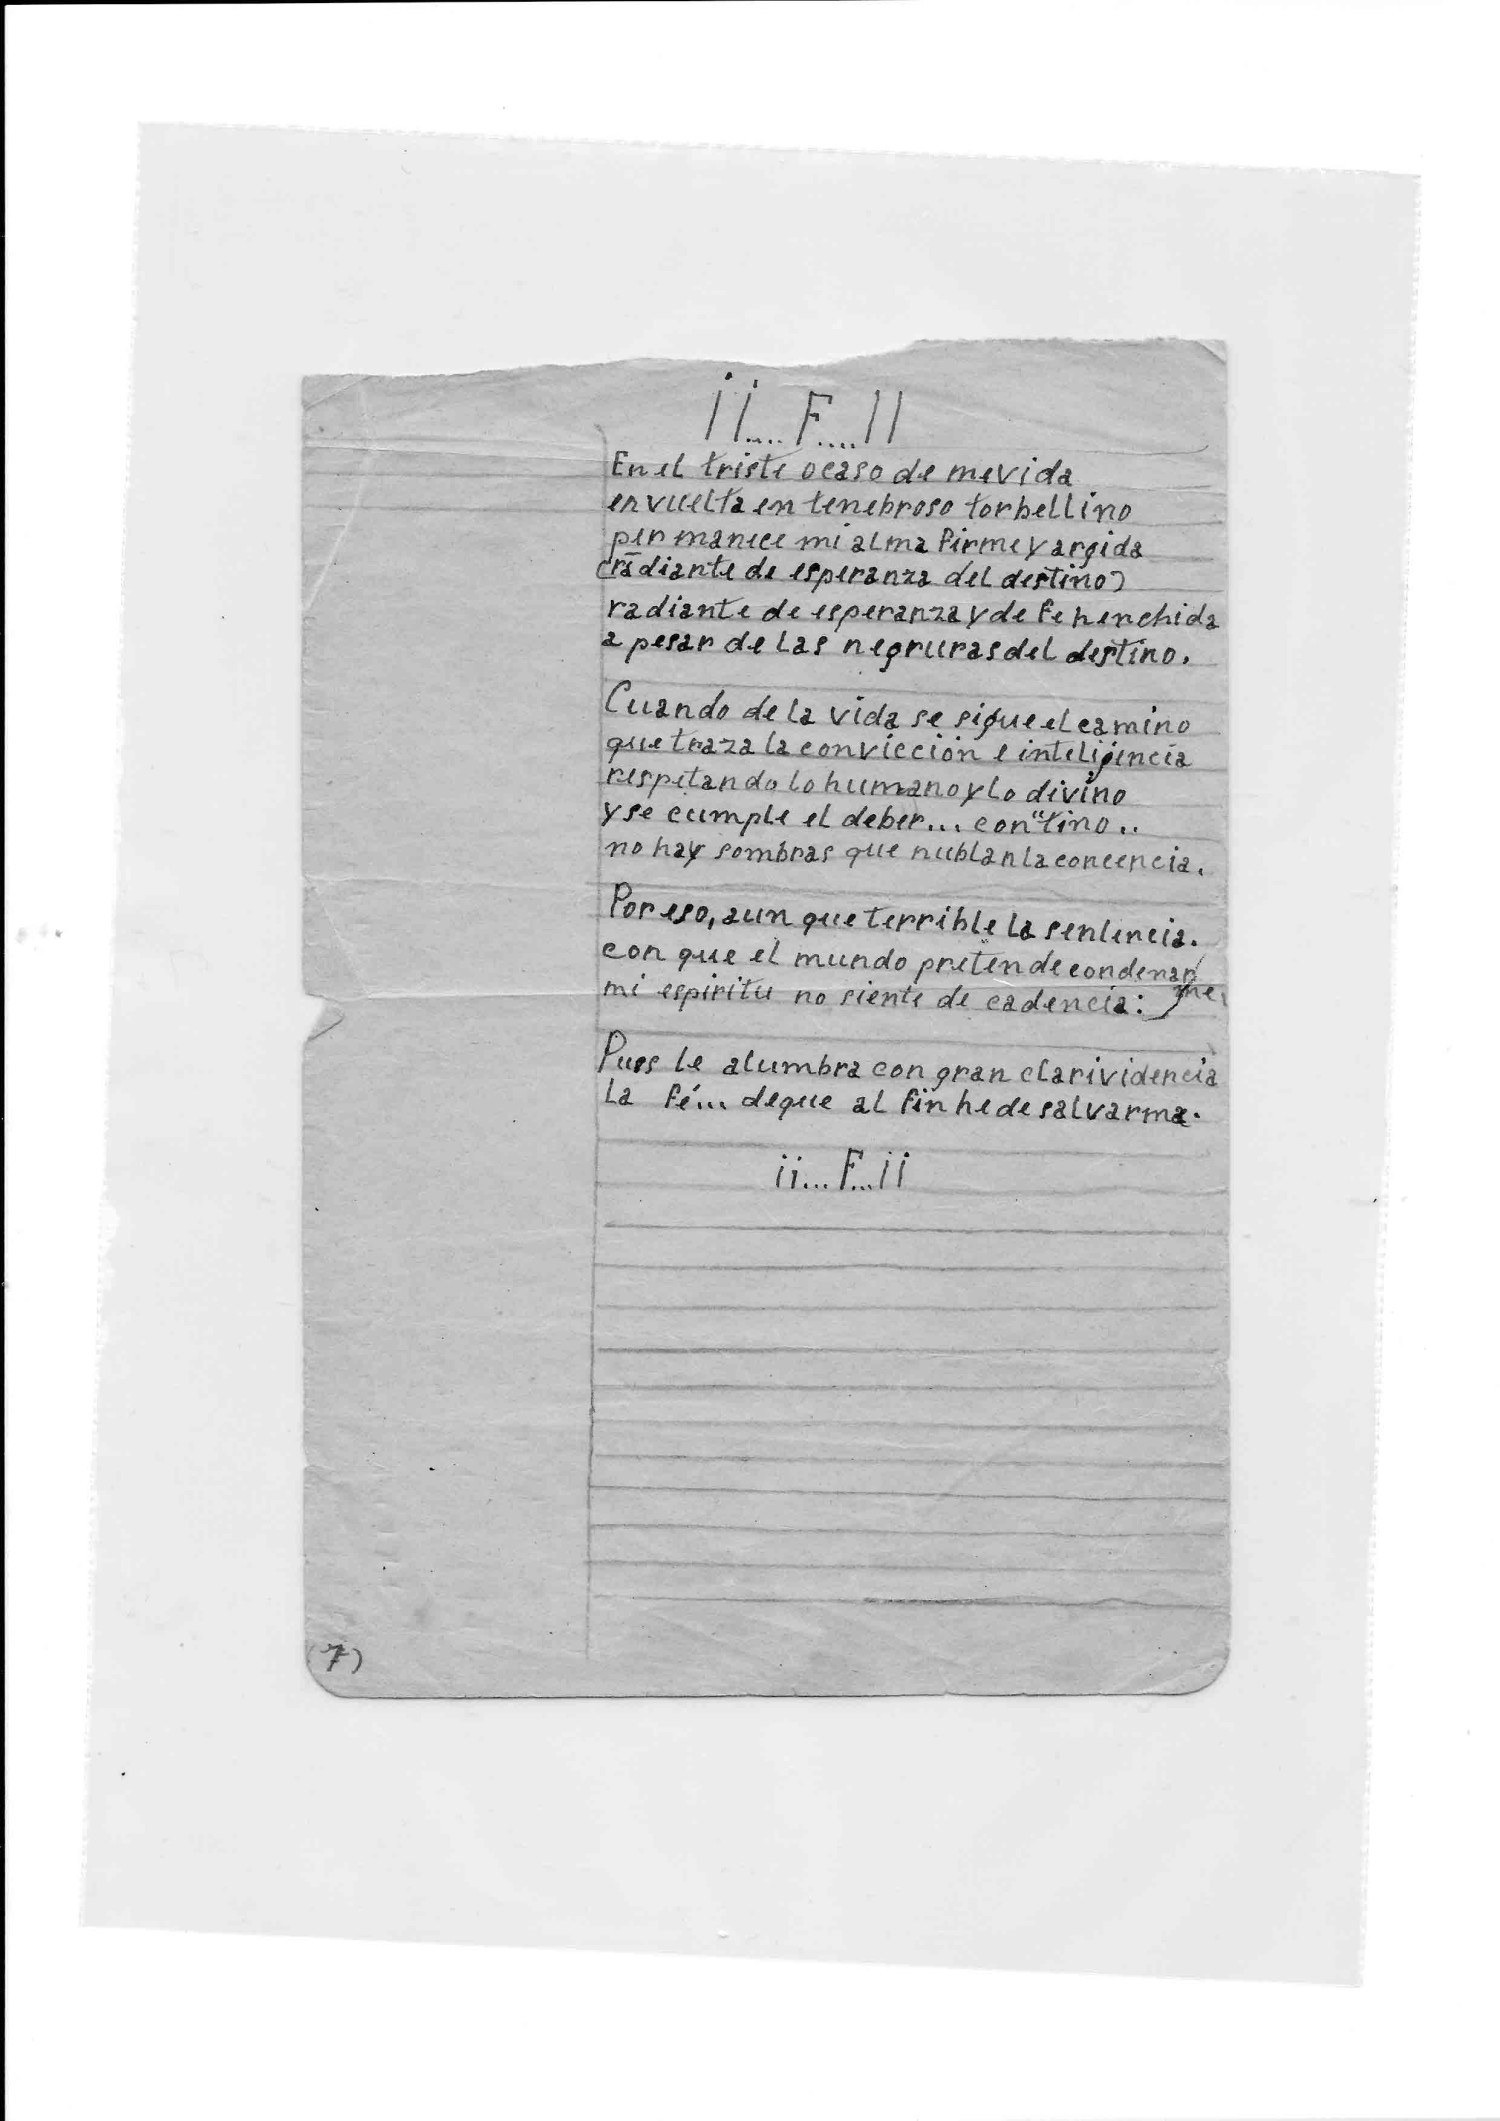 ¡¡.... F....!!
En el triste ocaso de mevida
envuelta en tenebroso torbellino
permanece mi alma firme y argida
(radiante de esperanza del destino)
radiante de esperanza y de fe henchida
a pesar de las negruras del destino.
Cuando de la vida se sigue el camino
que traza la convicción e inteligencia
respetando lo humano y lo divino
y se cumple el deber... con "tino..
no hay sombras que nublan la concencia.
Por eso, aun que terrible la sentencia.
con que el mundo pretende condenarme,
mi espiritu no siente de cadencia:
Pues le alumbra con gran clarividencia
La fé... de que al fin he de salvarme.
¡¡... F...¡¡
(7)